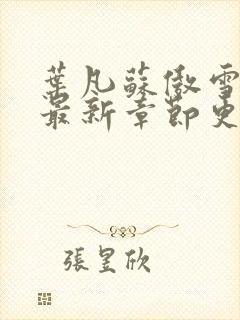 葉凡蘇傲雪
最新章節更
張昱欣